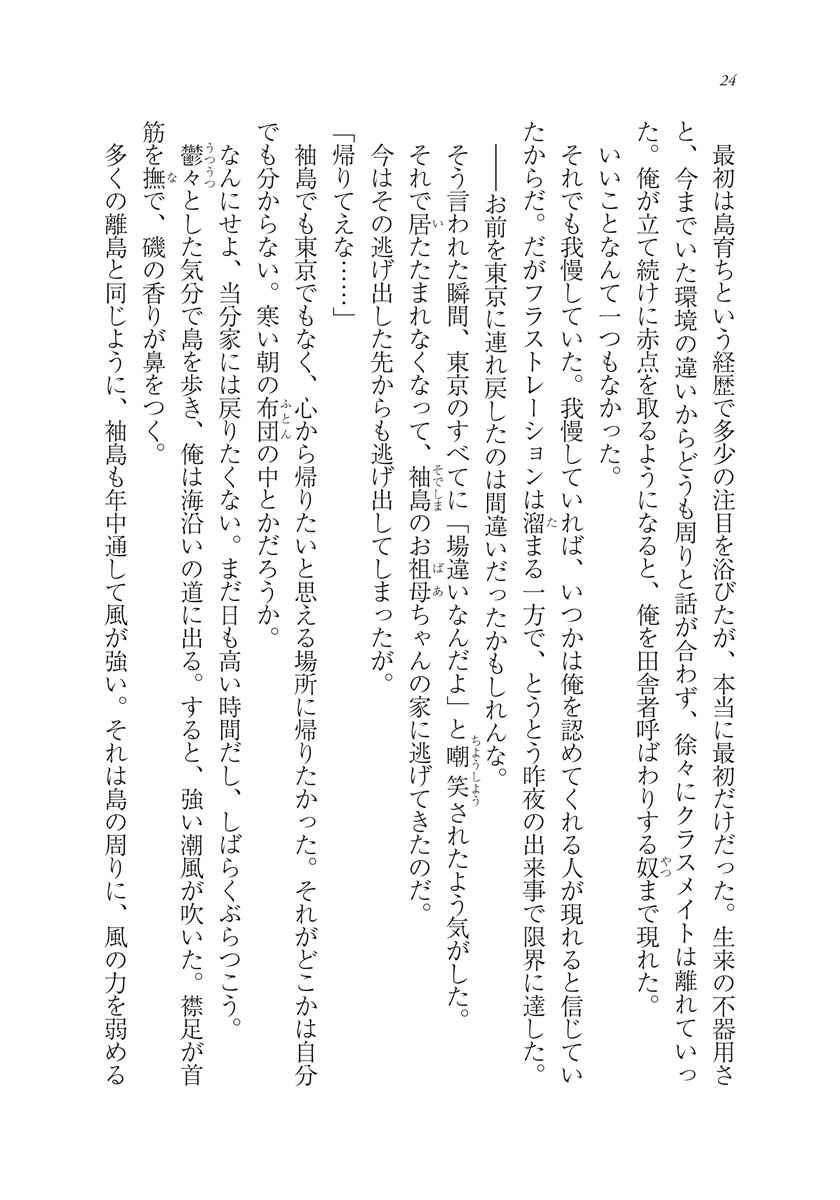 24
最初は島育ちという経歴で多少の注目を浴びたが、本当に最初だけだった。生来の不器用さ
と、今までいた環境の違いからどうも周りと話が合わず、徐々にクラスメイトは離れていっ
た。俺が立て続けに赤点を取るようになると、俺を田舎者呼ばわりする奴まで現れた。
いいことなんて一つもなかった。
それでも我慢していた。我慢していれば、いつかは俺を認めてくれる人が現れると信じてい
たからだ。だがフラストレーションは溜まる一方で、とうとう昨夜の出来事で限界に達した。
――お前を東京に連れ戻したのは間違いだったかもしれんな。
そう言われた瞬間、東京のすべてに「場違いなんだよ」と嘲笑されたよう気がした。
それで居たたまれなくなって、袖島のお祖母ちゃんの家に逃げてきたのだ。
今はその逃げ出した先からも逃げ出してしまったが。
「帰りてえな……」
袖島でも東京でもなく、心から帰りたいと思える場所に帰りたかった。それがどこかは自分
でも分からない。寒い朝の布団の中とかだろうか。
なんにせよ、当分家には戻りたくない。まだ日も高い時間だし、しばらくぶらつこう。
鬱々とした気分で島を歩き、俺は海沿いの道に出る。すると、強い潮風が吹いた。襟足が首
筋を撫で、磯の香りが鼻をつく。
多くの離島と同じように、袖島も年中通して風が強い。それは島の周りに、風の力を弱める